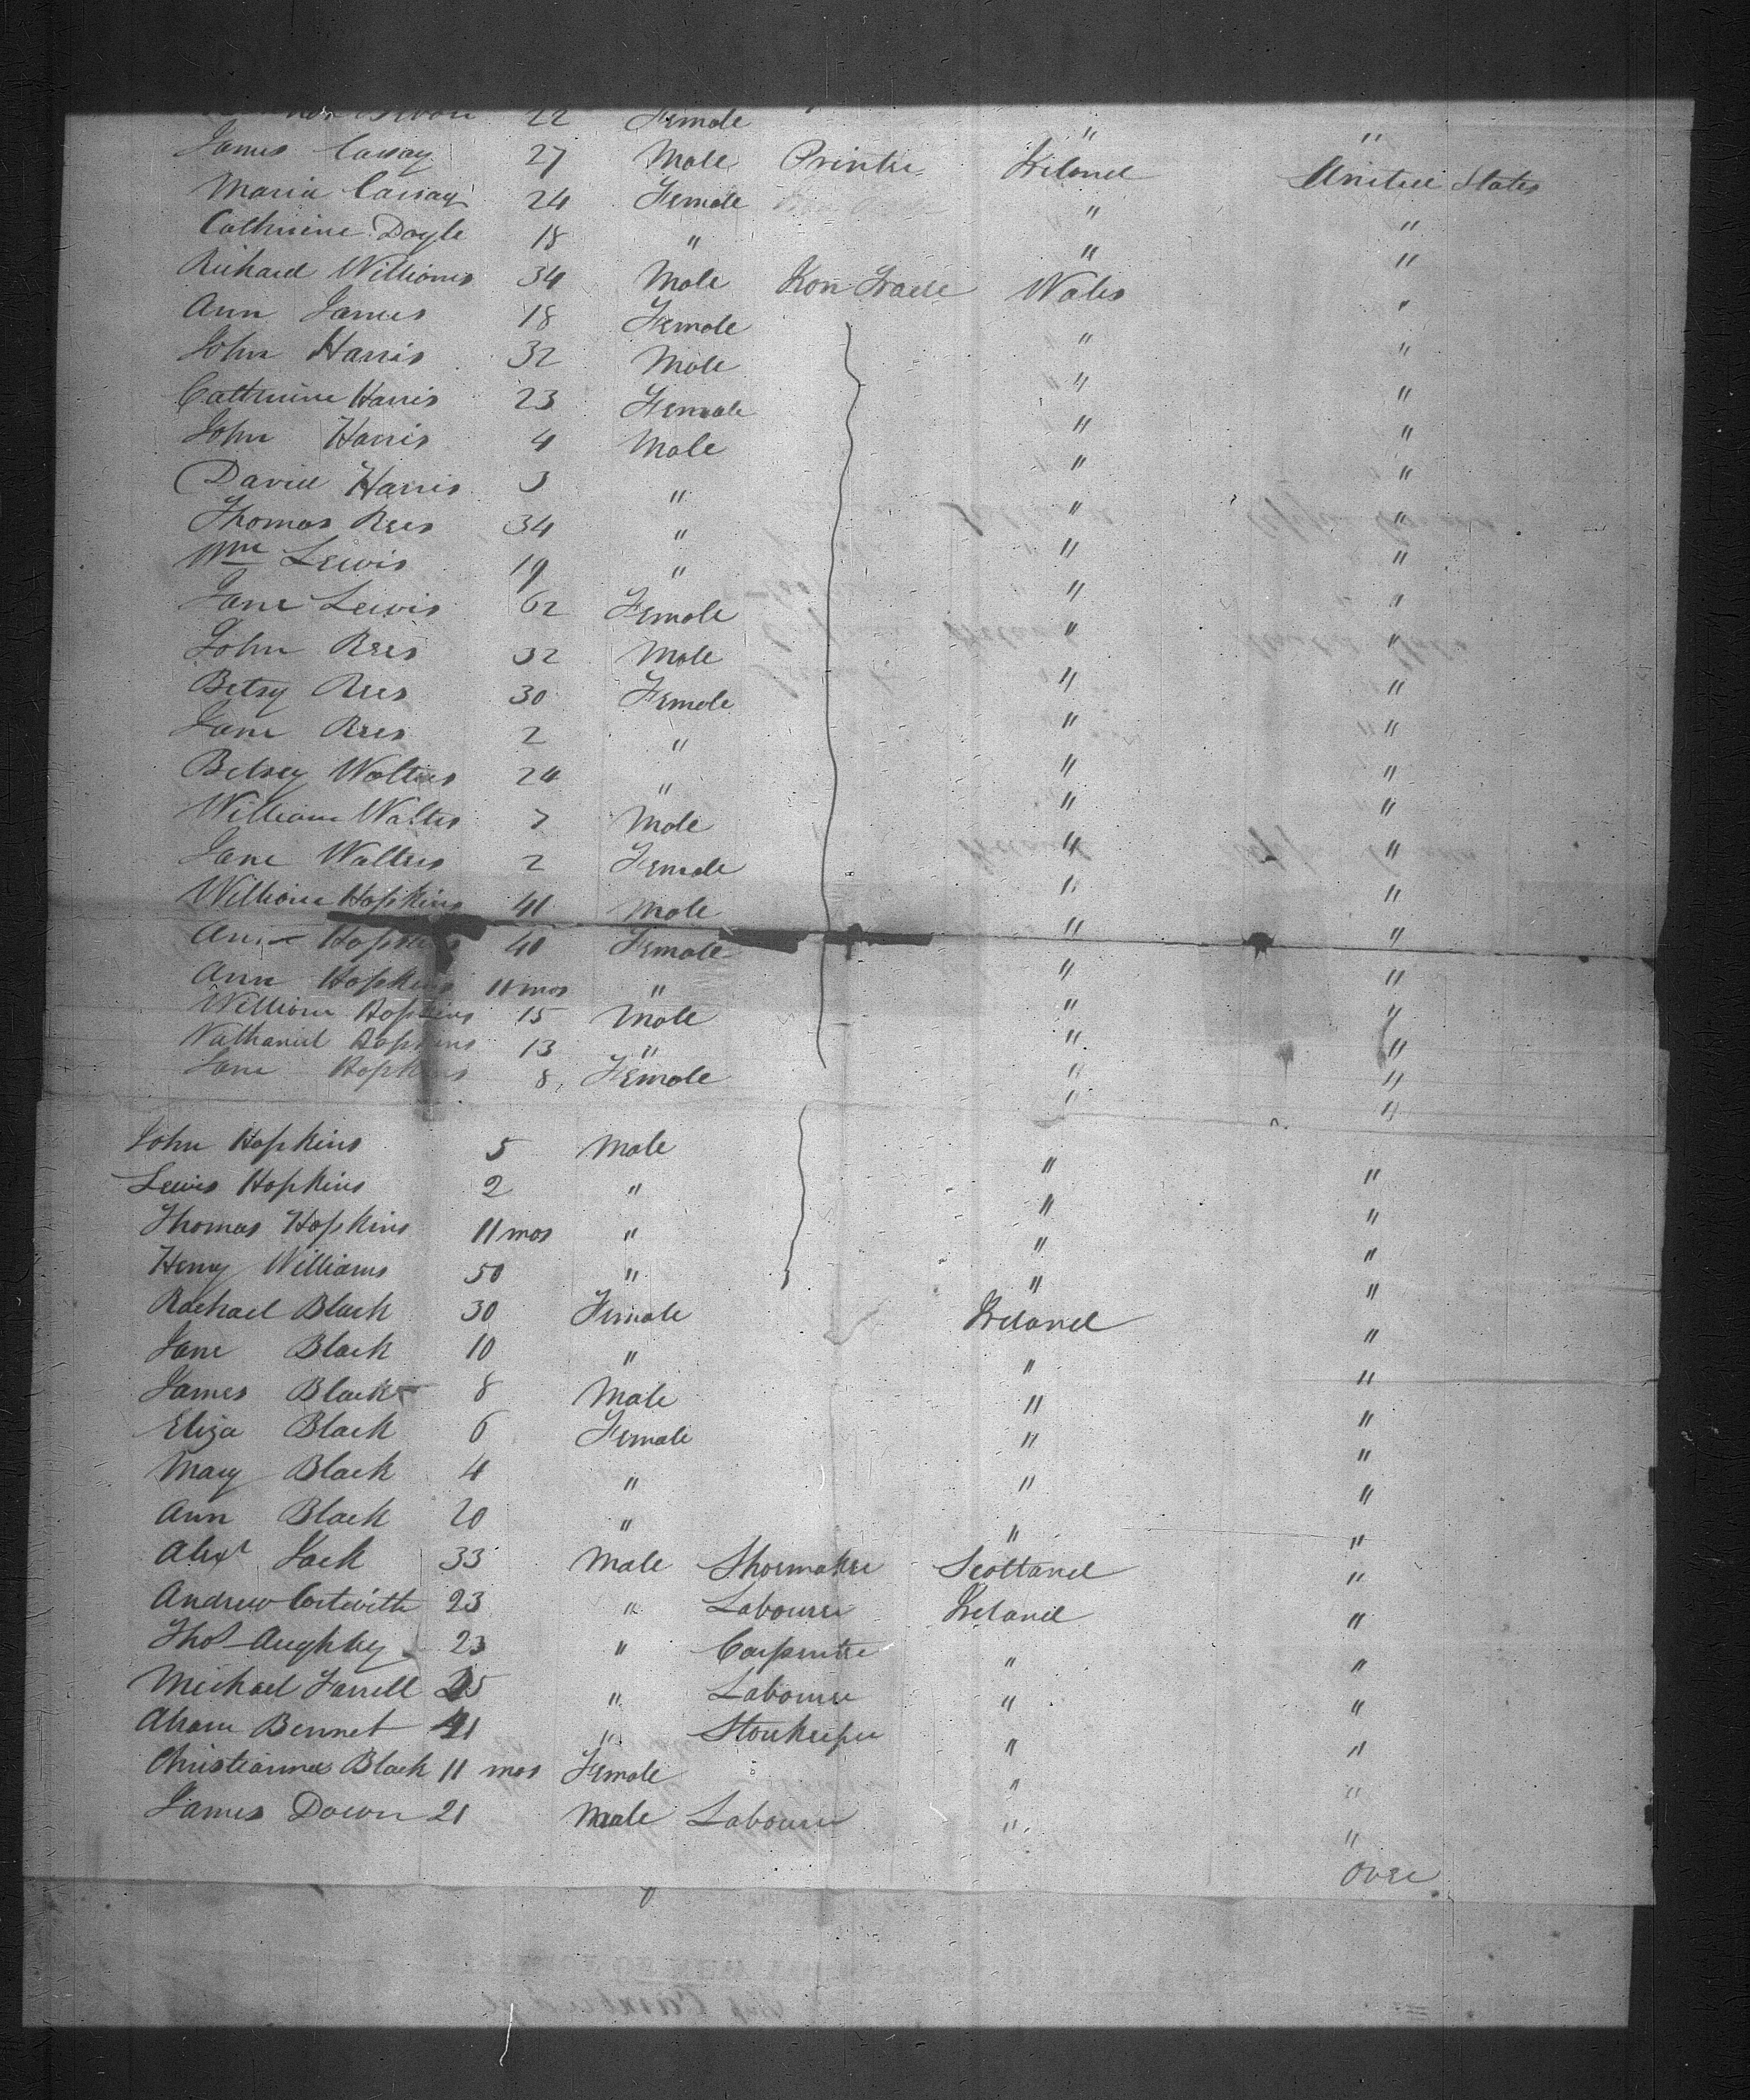 22 Female " "
James Cassay 27 Male Printer Ireland United States
Maria Cassay 24 Female " "
Catherine Doyle 18 " " "
Richard Williams 34 Male Iron Trade Wales "
Ann James 18 Female " "
John Harris 32 Male " "
Catherine Harris 23 Female " "
John Harris 4 Male " "
David Harris 3 " " "
Thomas Rees 34 " " "
Wm Lewis 19 " " "
Jane Lewis 62 Female " "
John Rees 32 Male " "
Betsy Rees 30 Female " "
Jane Rees 2 " " "
Betsey Walters 24 " " "
William Walters 7 Male " "
Jane Walters 2 Female " "
William Hopkins 41 Male " "
Ann Hopkins 40 Female " "
Ann Hopkins 11 mos " " "
William Hopkins 15 Male " "
Nathaniel Hopkins 13 " " "
Jane Hopkins 8 Female " "
John Hopkins 5 Male " "
Lewis Hopkins 2 " " "
Thomas Hopkins 11 mos " " "
Henry Williams 50 " " "
Rachael Black 30 Female Ireland "
Jane Black 10 " " "
James Black 8 Male " "
Eliza Black 6 Female " "
Mary Black 4 " " "
Ann Black 20 " " "
Alexr Jack 33 Male Shoemaker Scotland "
Andrew 23 " Labourer Ireland "
Thos Aughley 23 " Carpenter " "
Michael Farrell 25 " Labourer " "
Abram Bennet 41 " Storekeeper " "
Christianna Black 11 mos Female " "
James Down 21 Male Labourer " "
Over